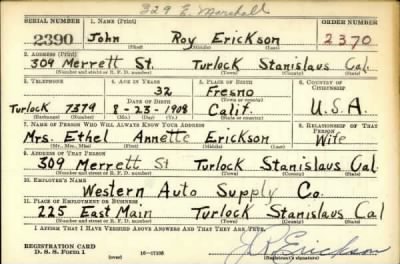 329 E. Marshall
SERIAL NUMBER 1. NAME (Print) ORDER NUMBER
2390 John Roy Erickson 2370
(First) (Middle) (Last)
2. ADDRESS (Print)
309 Merrett St. Turlock Stanislaus Cal.
(Number and street or R. F. D. number) (Town) (County) (State)
3. TELEPHONE 4. AGE IN YEARS 5. PLACE OF BIRTH 6. COUNTRY OF CITIZENSHIP
32 Fresno
DATE OF BIRTH (Town or county)
Turlock 7379 8-23-1908 Calif. U.S.A.
(Exchange) (Number) (Mo.) (Day) (Yr.) (State or country)
7. NAME OF PERSON WHO WILL ALWAYS KNOW YOUR ADDRESS 8. RELATIONSHIP OF THAT PERSON
Mrs. Ethel Annette Erickson Wife
(Mr., Mrs., Miss) (First) (Middle) (Last)
9. ADDRESS OF THAT PERSON
309 Merrett St Turlock Stanislaus Cal.
(Number and street or R. F. D. number) (Town) (County) (State)
10. EMPLOYER'S NAME
Western Auto Supply Co.
11. PLACE OF EMPLOYMENT OR BUSINESS
225 East Main Turlock Stanislaus Cal
(Number and street or R. F. D. number) (Town) (County) (State)
I AFFIRM THAT I HAVE VERIFIED ABOVE ANSWERS AND THAT THEY ARE TRUE.
REGISTRATION CARD
D. S. S. Form 1 (over) 16-17105 (Registrant's signature)
J R Erickson